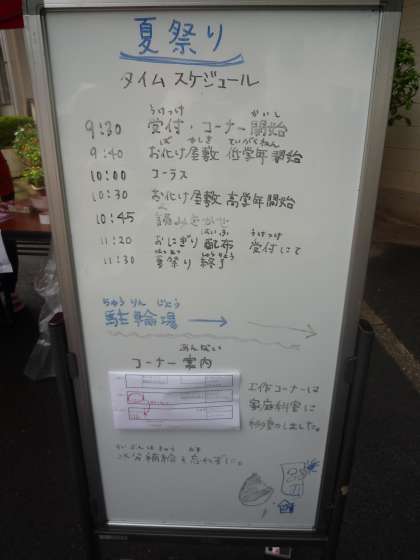 夏祭り
タイムスケジュール
うけつけ かいし
9:30 受付・コーナー開始
ば やしき ていがくねん
9:40 お化け屋敷 低学年開始
10:00 コーラス
10:30 お化け屋敷 高学年開始
10:45 読みきかせ
はいふ うけつけ
11:20 おにぎり配布 受付にて
しゅうりょう
11:30 夏祭り 終了
ちゅうりんじょう
駐輪場 →
あんない
コーナー案内
工作コーナーは
家庭科室に
移動しました。
すいぶんほきゅう わす
水分補給を忘れずに。